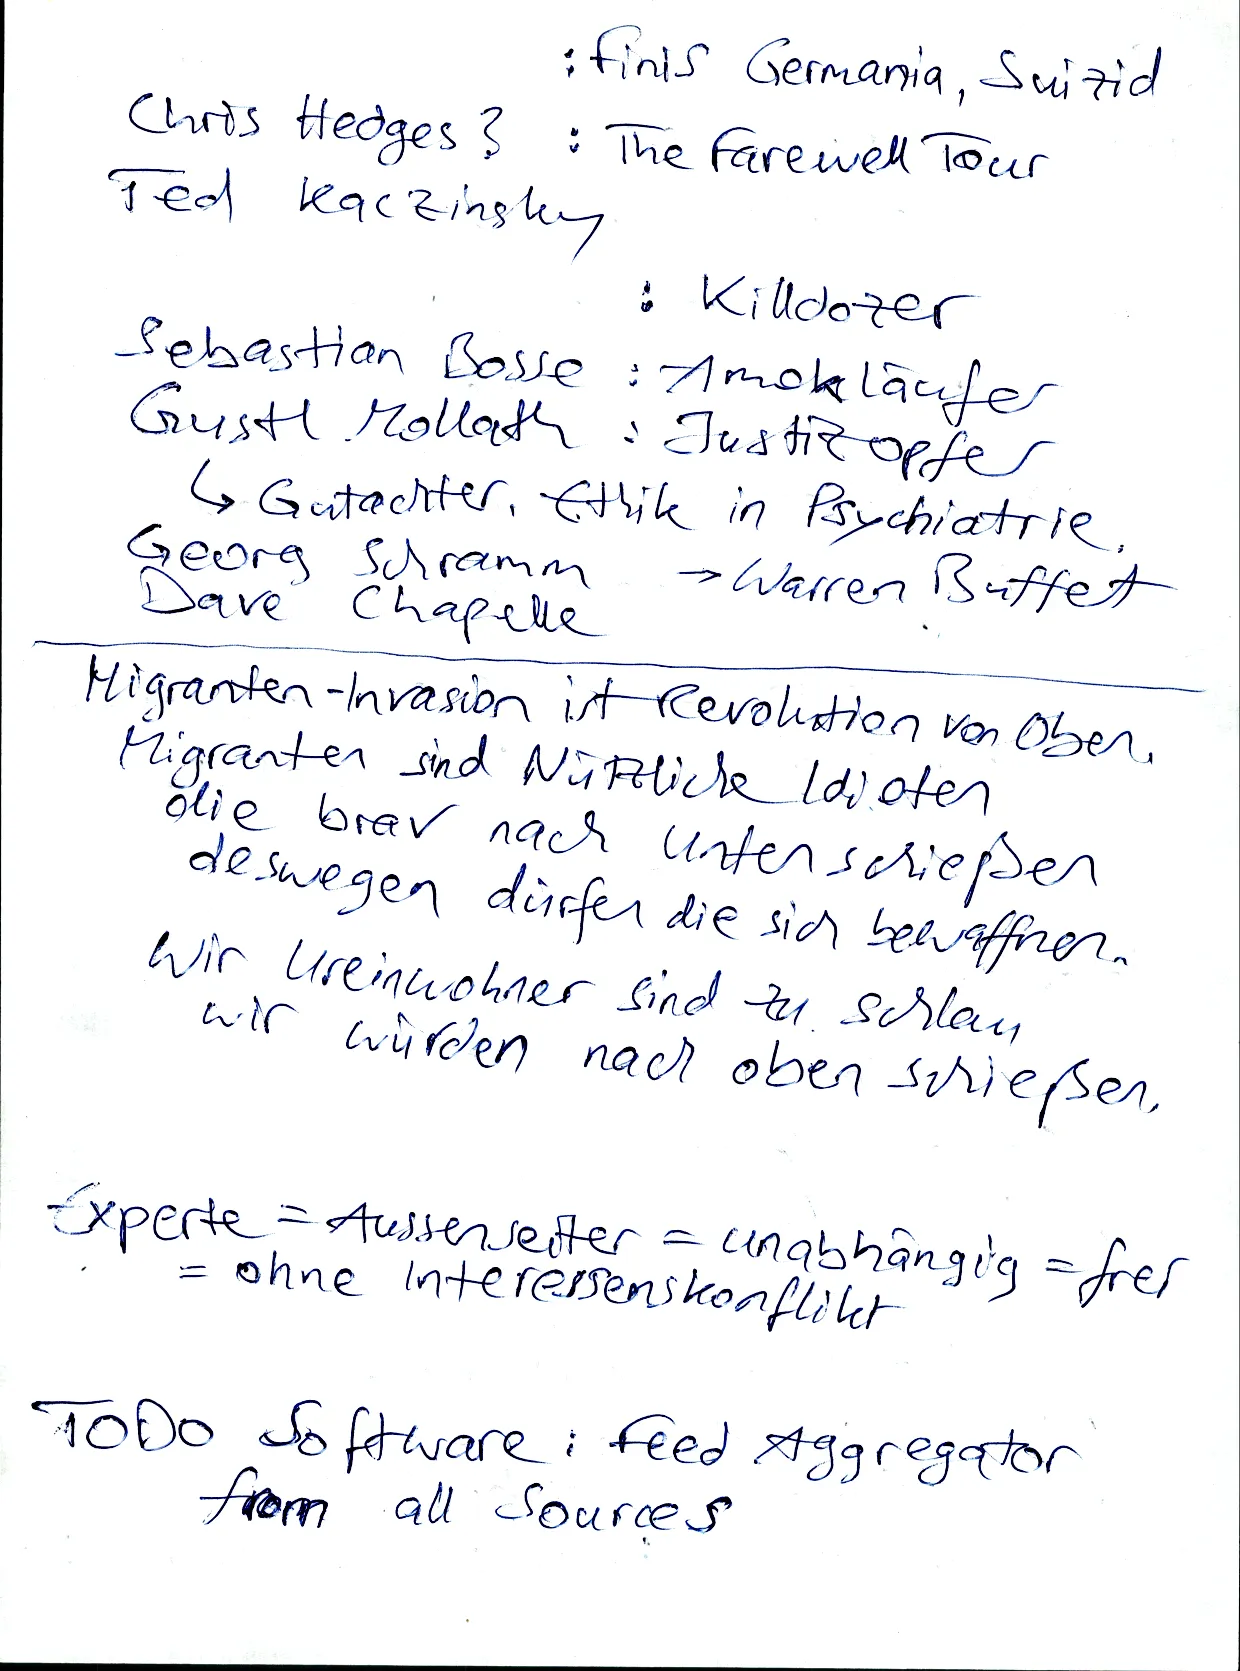 : Finis Germania, Suizid
Chris Hedges? : The Farewell Tour
Ted Kaczinsky
: Killdozer
Sebastian Bosse : Amokläufer
Gustl Mollath : Justizopfer
↳ Gutachter. Ethik in Psychiatrie.
Georg Schramm → Warren Buffet
Dave Chapelle
Migranten-Invasion ist Revolution von Oben.
Migranten sind Nützliche Idioten
die brav nach unten schießen
deswegen dürfen die sich bewaffnen.
Wir Ureinwohner sind zu schlau
wir würden nach oben schießen.
Experte = Aussenseiter = unabhängig = frei
= ohne Interessenskonflikt
TODO Software : Feed Aggregator
from all Sources